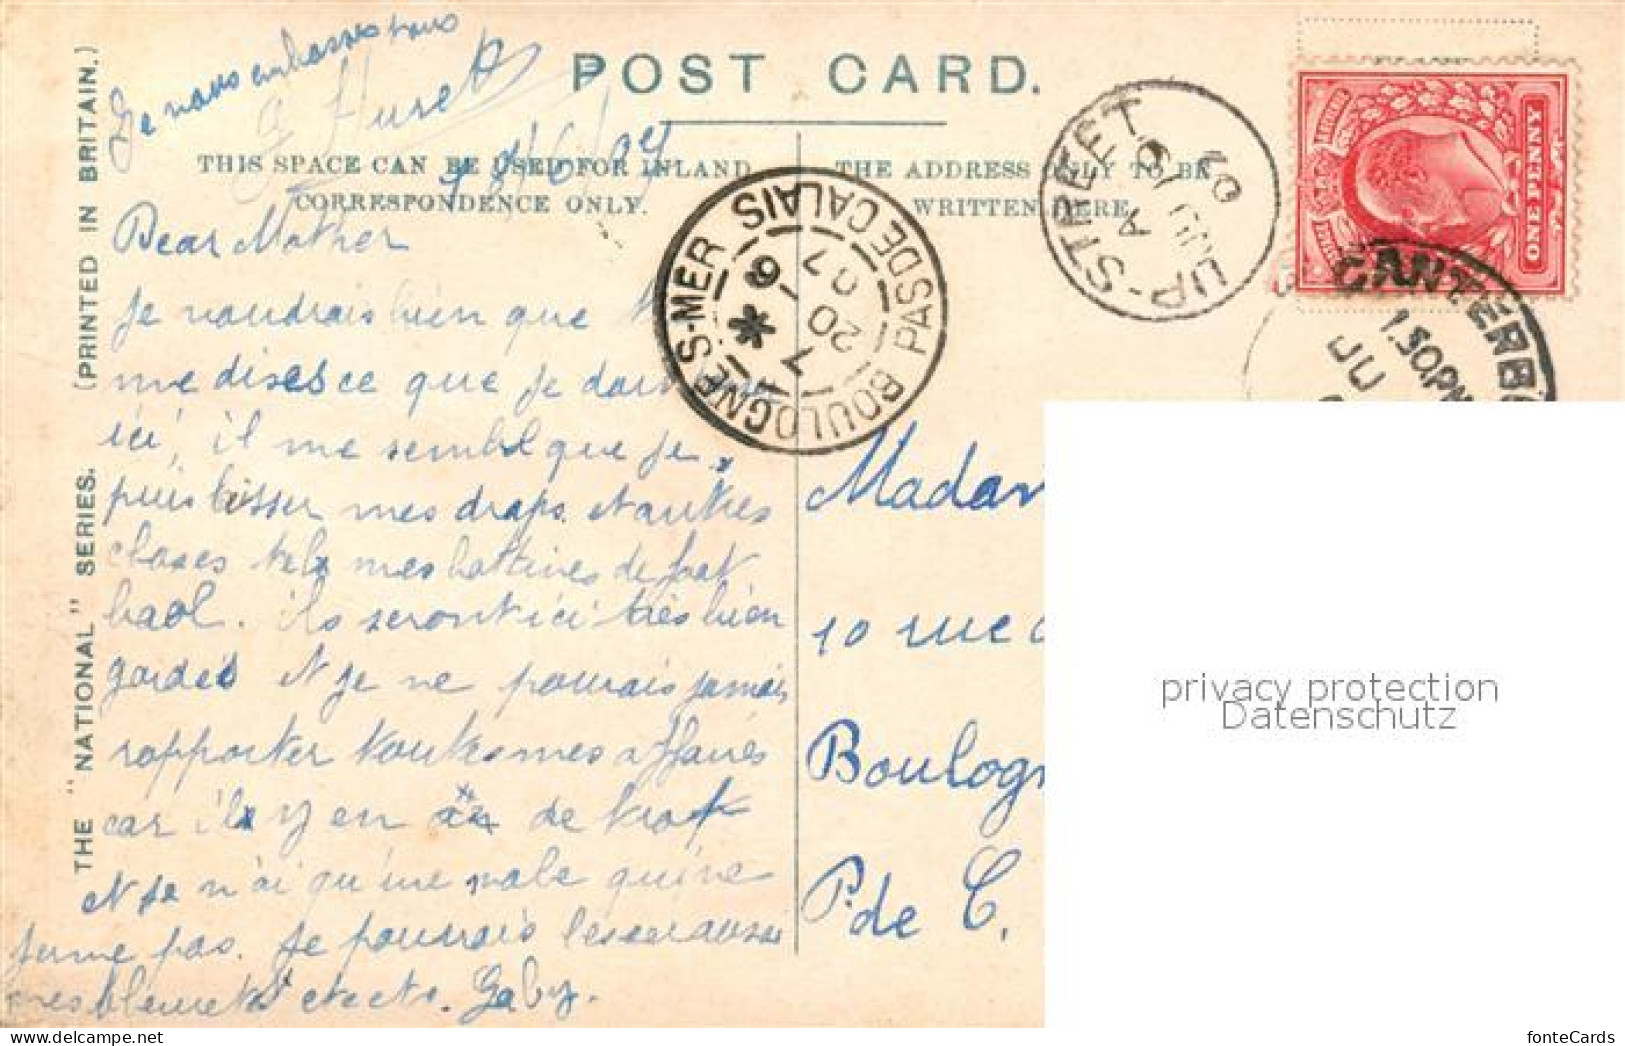 Je vous embrasse tous
G Huret
18/6/07
POST CARD.
THIS SPACE CAN BE USED FOR INLAND
CORRESPONDENCE ONLY.
THE ADDRESS ONLY TO BE
WRITTEN HERE.
THE "NATIONAL" SERIES. (PRINTED IN BRITAIN.)
Dear Mother
Je voudrais bien que
me dises ce que je dois
ici, il me semble que je
puis laisser mes draps et autres
choses tels mes bottines de foot
baol. ils seront ici très bien
gardés et je ne pourais jamais
rapporter toutes mes affaires
car il y en de trop
et je n'ai qu'une valse qui ne
ferme pas. Je pourrais laisser aussi
mes etc etc. Gaby.
BOULOGNE-S-MER PAS DE CALAIS
7
20
07
6
UP-STREET
A
JU 19
07
CANTERB
1.50PM
JU
ONE PENNY
Madam
10 rue
Boulog
P. de C.
privacy protection
Datenschutz
fonteCards